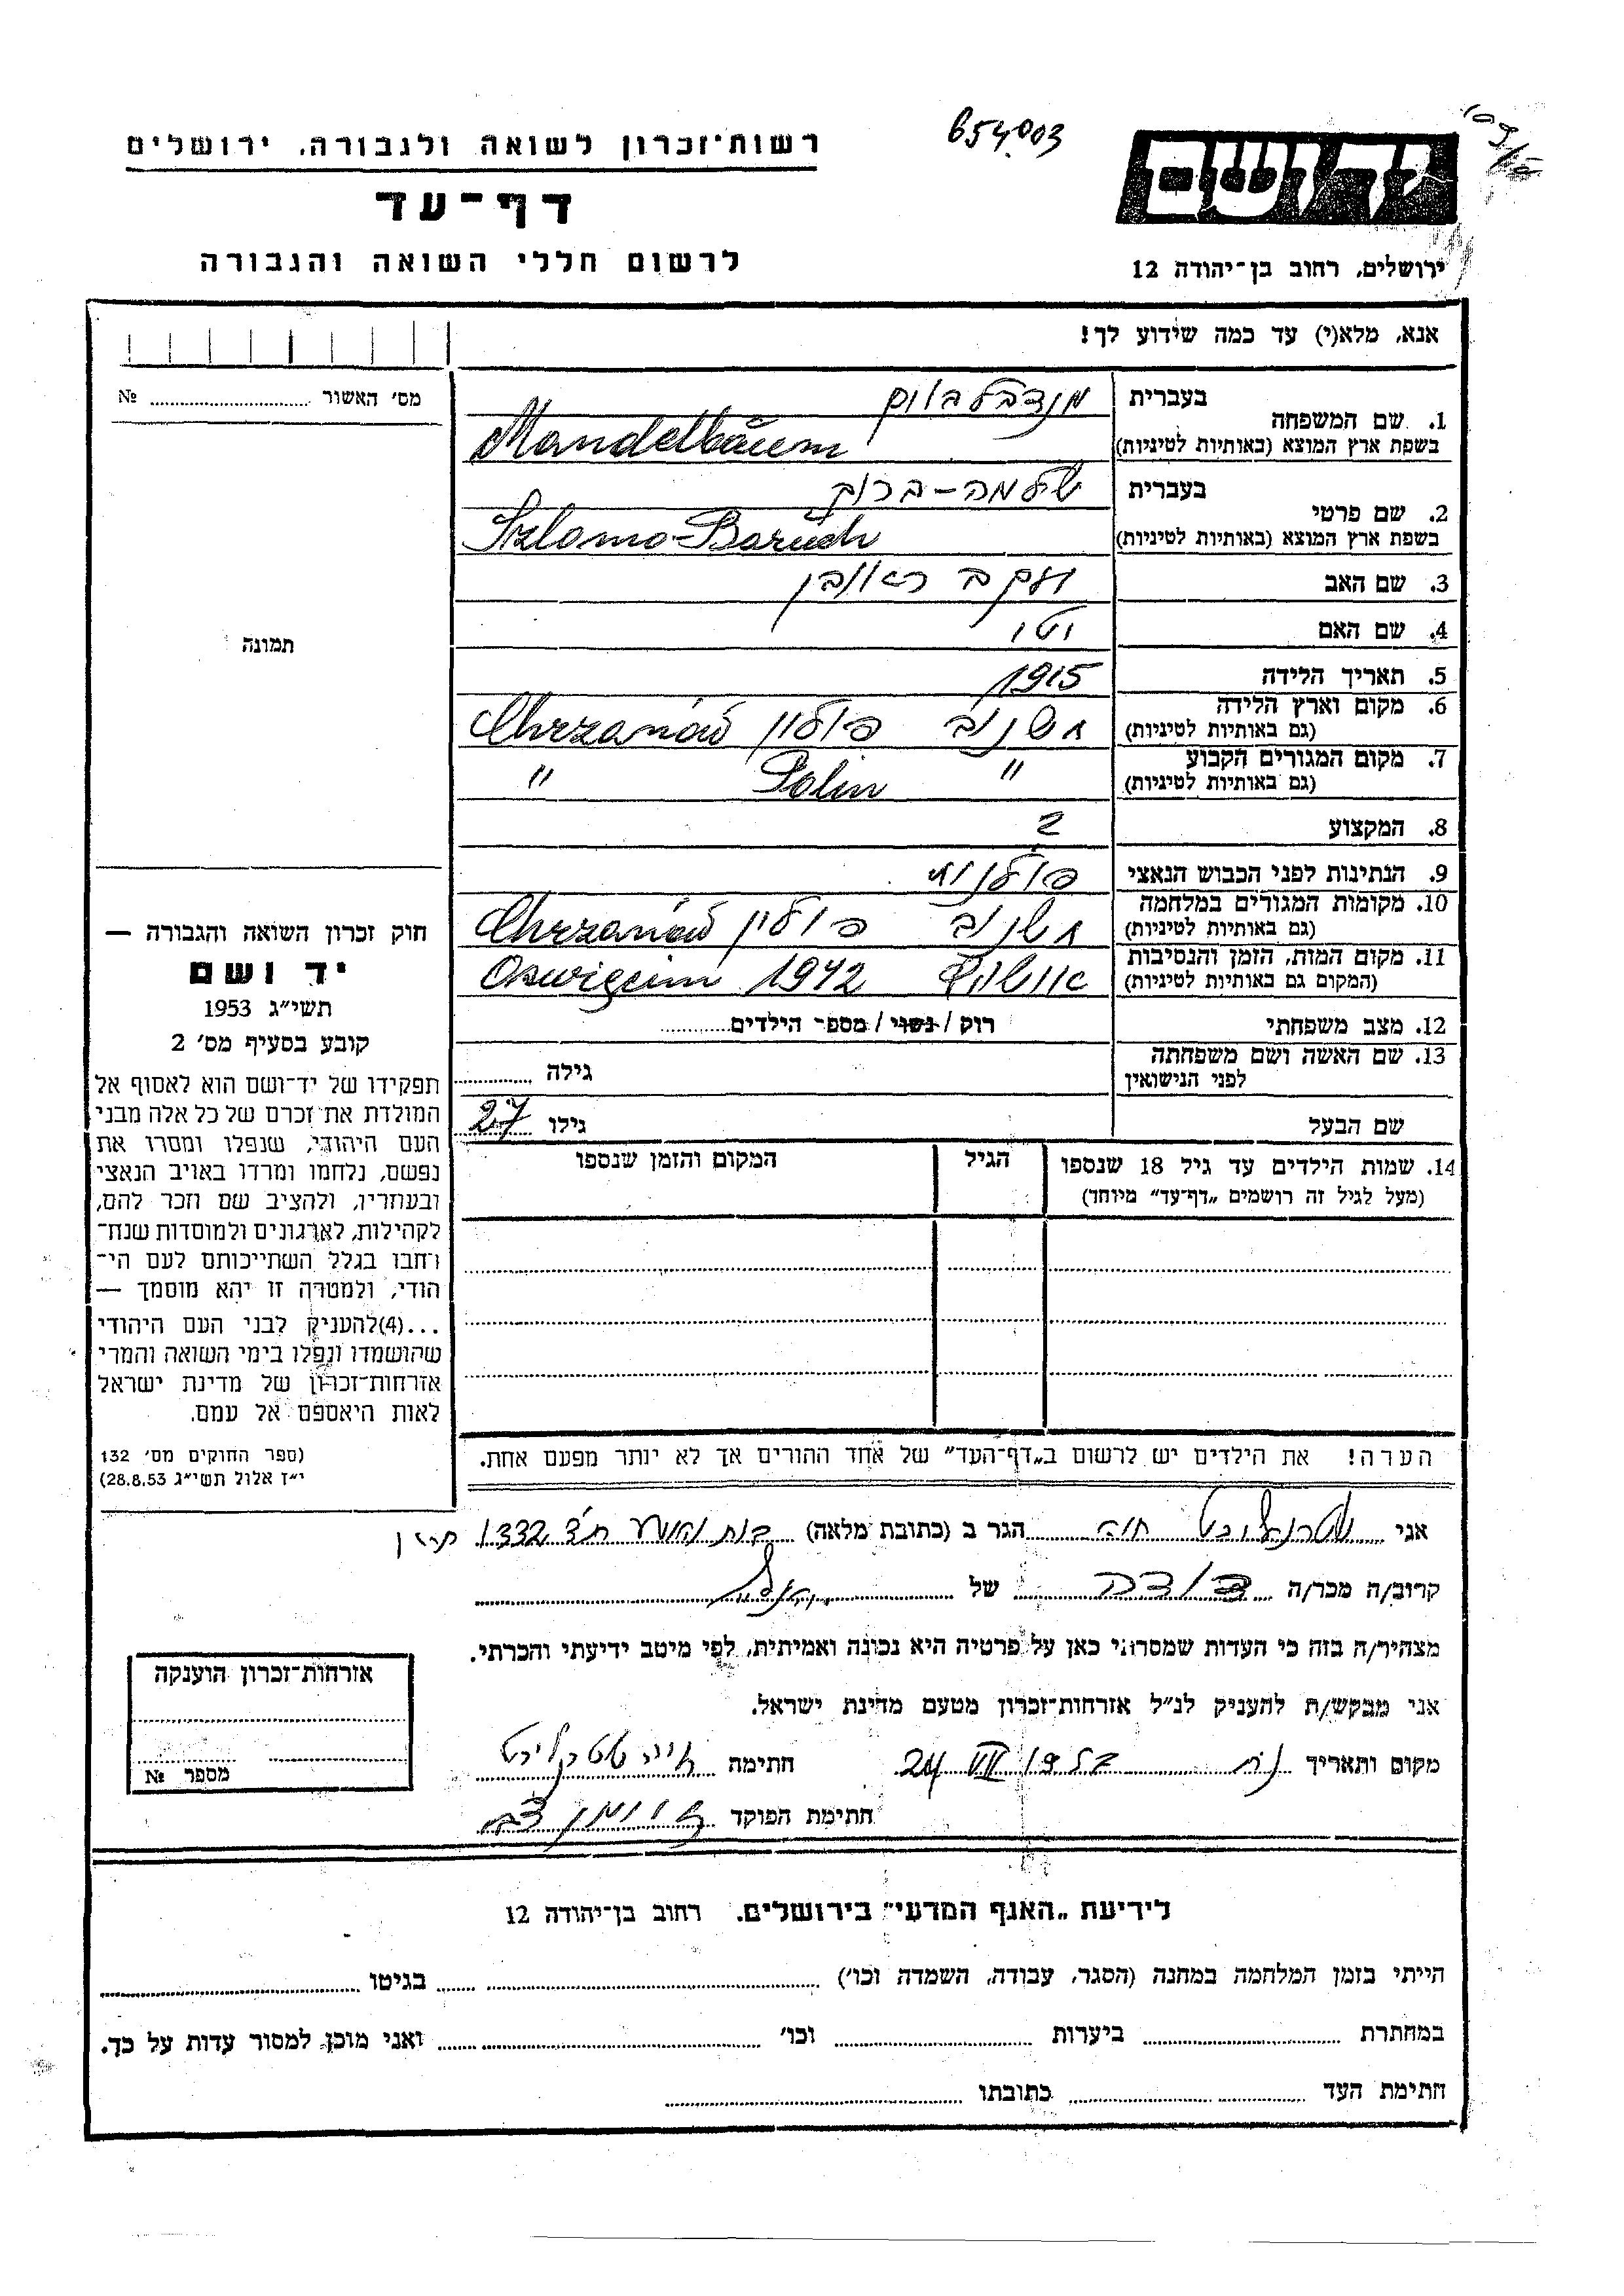 654003
רשות־זכרון לשואה ולגבורה, ירושלים
דף־עד
לרשום חללי השואה והגבורה
יד ושם
ירושלים, רחוב בן־יהודה 12
אנא, מלא(י) עד כמה שידוע לך!
מס׳ האשור №
תמונה
1. שם המשפחה בעברית מנדבלבוים
בשפת ארץ המוצא (באותיות לטיניות) Mandelbäum
2. שם פרטי בעברית שלמה-ברוך
בשפת ארץ המוצא (באותיות לטיניות) Szlomo-Baruch
3. שם האב יעקב ראובן
4. שם האם
5. תאריך הלידה 1915
6. מקום וארץ הלידה
(גם באותיות לטיניות) פולין Chrzanów
7. מקום המגורים הקבוע
(גם באותיות לטיניות) " Polin "
8. המקצוע
9. הנתינות לפני הכבוש הנאצי פולנית
10. מקומות המגורים במלחמה
(גם באותיות לטיניות) פולין Chrzanów
11. מקום המות, הזמן והנסיבות
(המקום גם באותיות לטיניות) Oswięcim 1942
12. מצב משפחתי רוק / נשוי / מספר הילדים
13. שם האשה ושם משפחתה
לפני הנישואין גילה
שם הבעל גילו 27
14. שמות הילדים עד גיל 18 שנספו הגיל המקום והזמן שנספו
(מעל לגיל זה רושמים „דף־עד״ מיוחד)
הערה! את הילדים יש לרשום ב„דף־העד״ של אחד ההורים אך לא יותר מפעם אחת.
חוק זכרון השואה והגבורה —
יד ושם
תשי״ג 1953
קובע בסעיף מס׳ 2
תפקידו של יד־ושם הוא לאסוף אל
המולדת את זכרם של כל אלה מבני
העם היהודי, שנפלו ומסרו את
נפשם, נלחמו ומרדו באויב הנאצי
ובעוזריו, ולהציב שם וזכר להם,
לקהילות, לארגונים ולמוסדות שנח־
רחבו בגלל השתייכותם לעם הי־
הודי, ולמטרה זו יהא מוסמך —
...(4)להעניק לבני העם היהודי
שהושמדו ונפלו בימי השואה והמרי
אזרחות־זכרון של מדינת ישראל
לאות היאספם אל עמם.
(ספר החוקים מס׳ 132
י״ז אלול תשי״ג 28.8.53)
אני חוה הגר ב (כתובת מלאה)
קרוב/ה מכר/ה דודה של
מצהיר/ה בזה כי העדות שמסרתי כאן על פרטיה היא נכונה ואמיתית, לפי מיטב ידיעתי והכרתי.
אני מבקש/ת להעניק לנ״ל אזרחות־זכרון מטעם מדינת ישראל.
מקום ותאריך 24 VII חתימה
חתימת הפוקד
אזרחות־זכרון הוענקה
מספר №
לידיעת „האגף המדעי״ בירושלים, רחוב בן־יהודה 12
הייתי בזמן המלחמה במחנה (הסגר, עבודה, השמדה וכו׳) בגיטו
במחתרת ביערות וכו׳ ואני מוכן למסור עדות על כך.
חתימת העד כתובתו